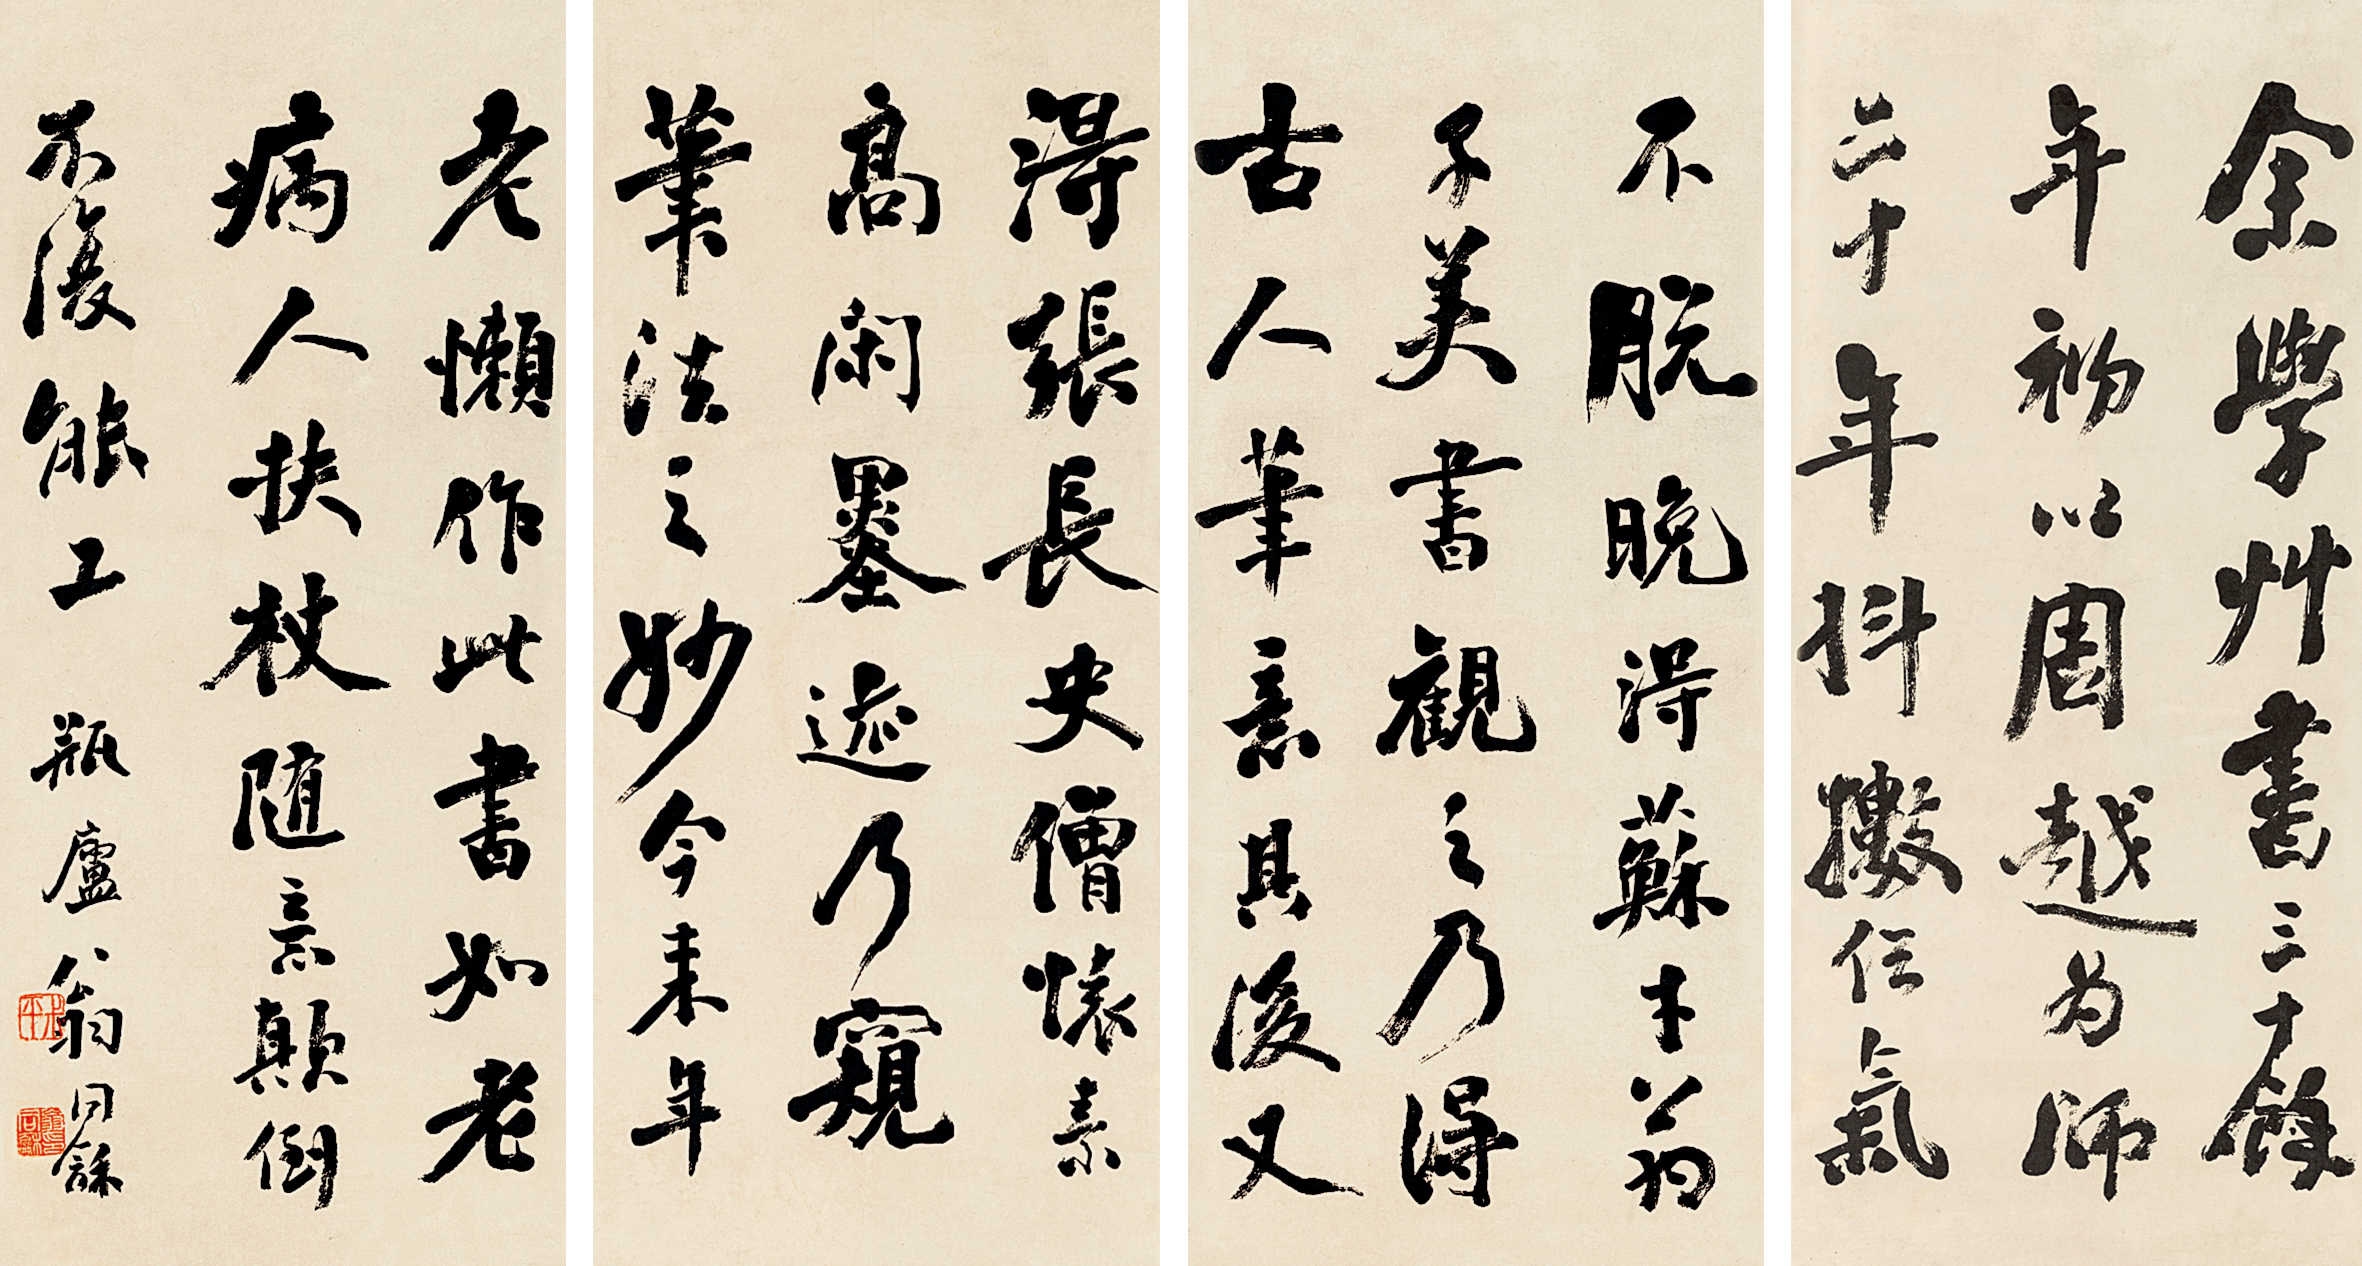 余學艸書三十餘
年初以周越为師
二十年抖擻任氣
不脫晚得蘇才翁
子美書觀之乃得
古人筆意其後又
得張長史僧懷素
高閑墨迹乃窺
筆法之妙今来年
老懶作此書如老
病人扶杖随意顛倒
不復能工 瓶廬翁同龢